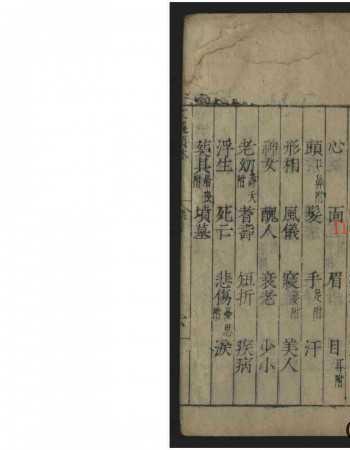 心 面 眉 目耳附
頭 髮 手足附 汗
形相 風儀 美人
神女 醜人 衰老 少小
老幼壽夭附 耆壽 短折 疾病
浮生 死亡 悲傷憂思附 淚
墳墓